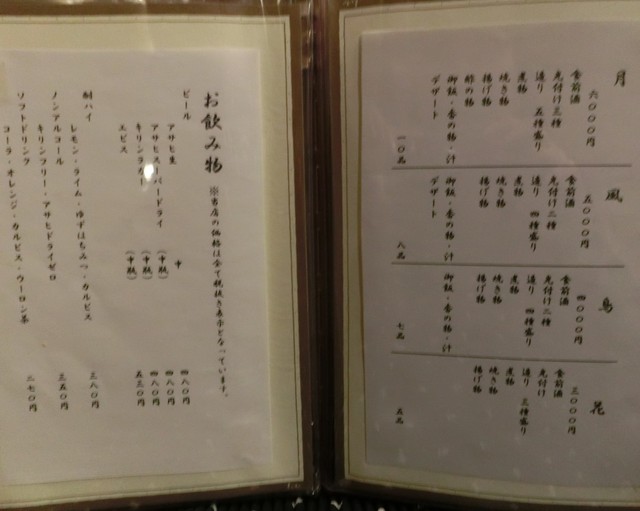 月
六〇〇〇円
食前酒
先付け三種
造り 五種盛り
煮物
焼き物
揚げ物
酢の物
御飯・香の物・汁
デザート
一〇品
風
五〇〇〇円
食前酒
先付け二種
造り 四種盛り
煮物
焼き物
揚げ物
御飯・香の物・汁
デザート
八品
鳥
四〇〇〇円
食前酒
先付け二種
造り 四種盛り
煮物
焼き物
揚げ物
御飯・香の物・汁
七品
花
三〇〇〇円
食前酒
先付け
造り 三種盛り
煮物
焼き物
揚げ物
五品
お飲み物 ※当店の価格は全て税抜き表示となっています。
ビール
アサヒ生 中 四八〇円
アサヒスーパードライ (中瓶) 四八〇円
キリンラガー (中瓶) 四八〇円
エビス (中瓶) 五三〇円
酎ハイ
レモン・ライム・ゆずはちみつ・カルピス 三八〇円
ノンアルコール
キリンフリー・アサヒドライゼロ 三五〇円
ソフトドリンク
コーラ・オレンジ・カルピス・ウーロン茶 二七〇円